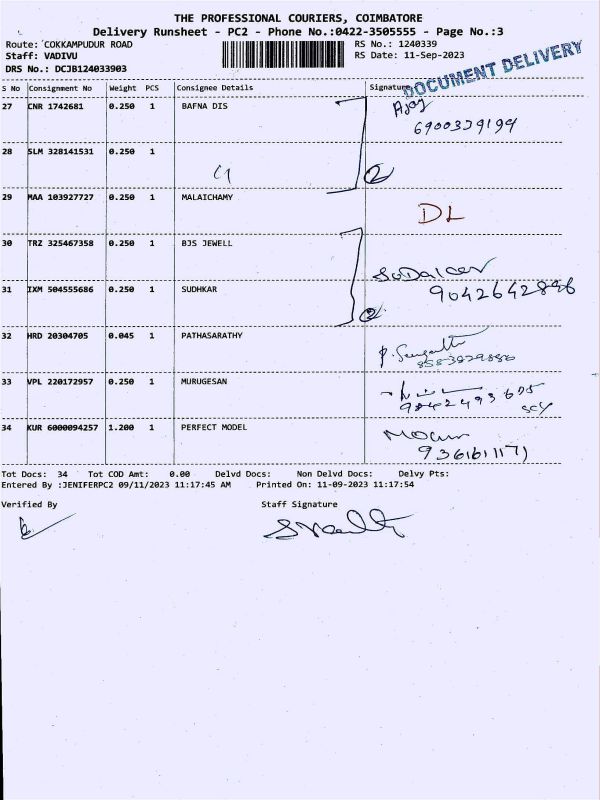 THE PROFESSIONAL COURIERS, COIMBATORE
Delivery Runsheet - PC2 - Phone No.:0422-3505555 - Page No.:3
Route: COKKAMPUDUR ROAD RS No.: 1240339
Staff: VADIVU RS Date: 11-Sep-2023
DRS No.: DCJB124033903
DOCUMENT DELIVERY
S No Consignment No Weight PCS Consignee Details Signature
27 CNR 1742681 0.250 1 BAFNA DIS Ajay
6900339194
28 SLM 328141531 0.250 1
2
29 MAA 103927727 0.250 1 MALAICHAMY
DL
30 TRZ 325467358 0.250 1 BJS JEWELL
31 IXM 504555686 0.250 1 SUDHKAR
9042642896
2
32 HRD 20304705 0.045 1 PATHASARATHY
33 VPL 220172957 0.250 1 MURUGESAN
34 KUR 6000094257 1.200 1 PERFECT MODEL
9361611171
Tot Docs: 34 Tot COD Amt: 0.00 Delvd Docs: Non Delvd Docs: Delvy Pts:
Entered By :JENIFERPC2 09/11/2023 11:17:45 AM Printed On: 11-09-2023 11:17:54
Verified By Staff Signature